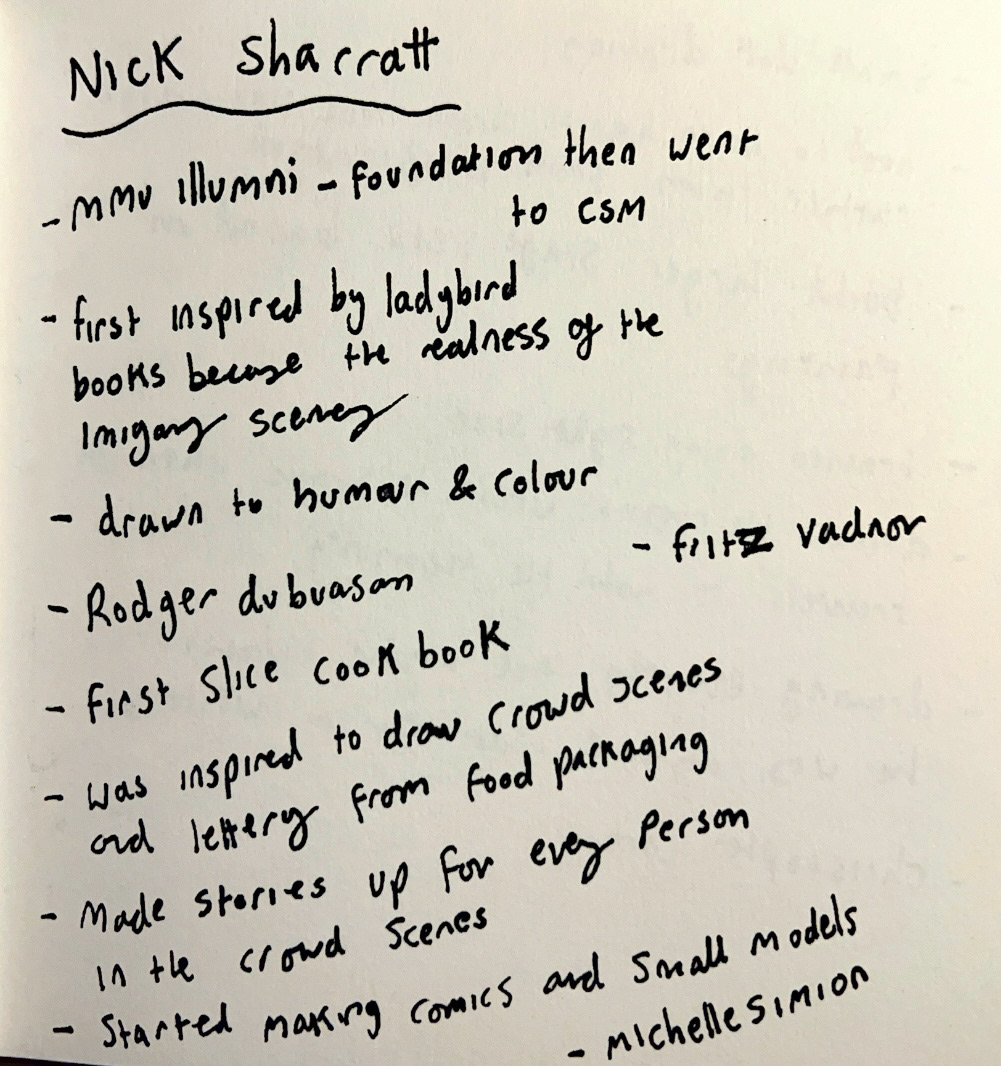 Nick Sharratt
- MMU illumni - foundation then went
to CSM
- first inspired by ladybird
books becuase the realness of the
imigary scenery
- drawn to humour & colour
- fritz vadnor
- Rodger dubuasan
- first Slice cook book
- was inspired to draw crowd scenes
and lettery from food packaging
- Made stories up for every Person
in the crowd Scenes
- Started making comics and small models
- michelle simion